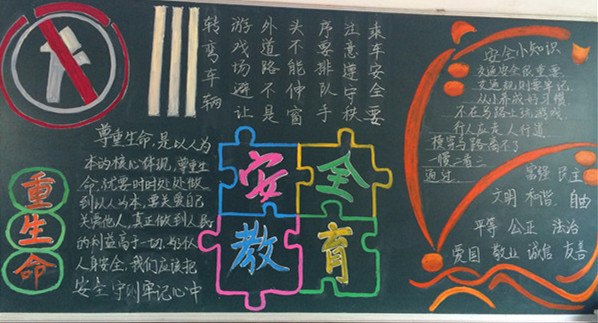 乘车安全要
注意遵守秩
序要排队手
头不能伸窗
外道路不是
游戏场避让
转弯车辆
尊重生命,是以人为
本的核心体现,尊重生
命,就要时时处处做
到以人为本,要关爱自己
关爱他人,真正做到人民
的利益高于一切,
人身安全,我们应该把
安全守则牢记心中
重生命
安全
教育
安全小知识
交通安全很重要,
交通规则要牢记,
从小养成好习惯
不在马路上玩游戏.
行人应走人行道
马路离不了
一慢二看
通过
富强 民主
文明 和谐 自由
平等 公正 法治
爱国 敬业 诚信 友善